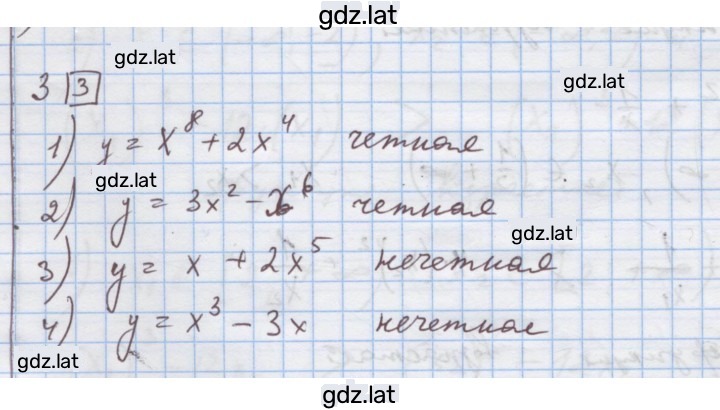 gdz.lat
gdz.lat
3 3 gdz.lat
1) y = x⁸ + 2x⁴ четная
gdz.lat
2) y = 3x² - x⁶ четная
gdz.lat
3) y = x + 2x⁵ нечетная
4) y = x³ - 3x нечетная
gdz.lat
gdz.lat